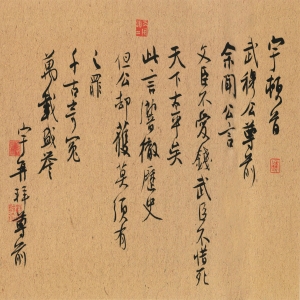 宇頓首
武穆公尊前
余聞公言
文臣不愛錢武臣不惜死
天下太平矣
此言響徹歷史
但公却獲莫須有
之罪
千古奇冤
萬載
宇再拜尊前